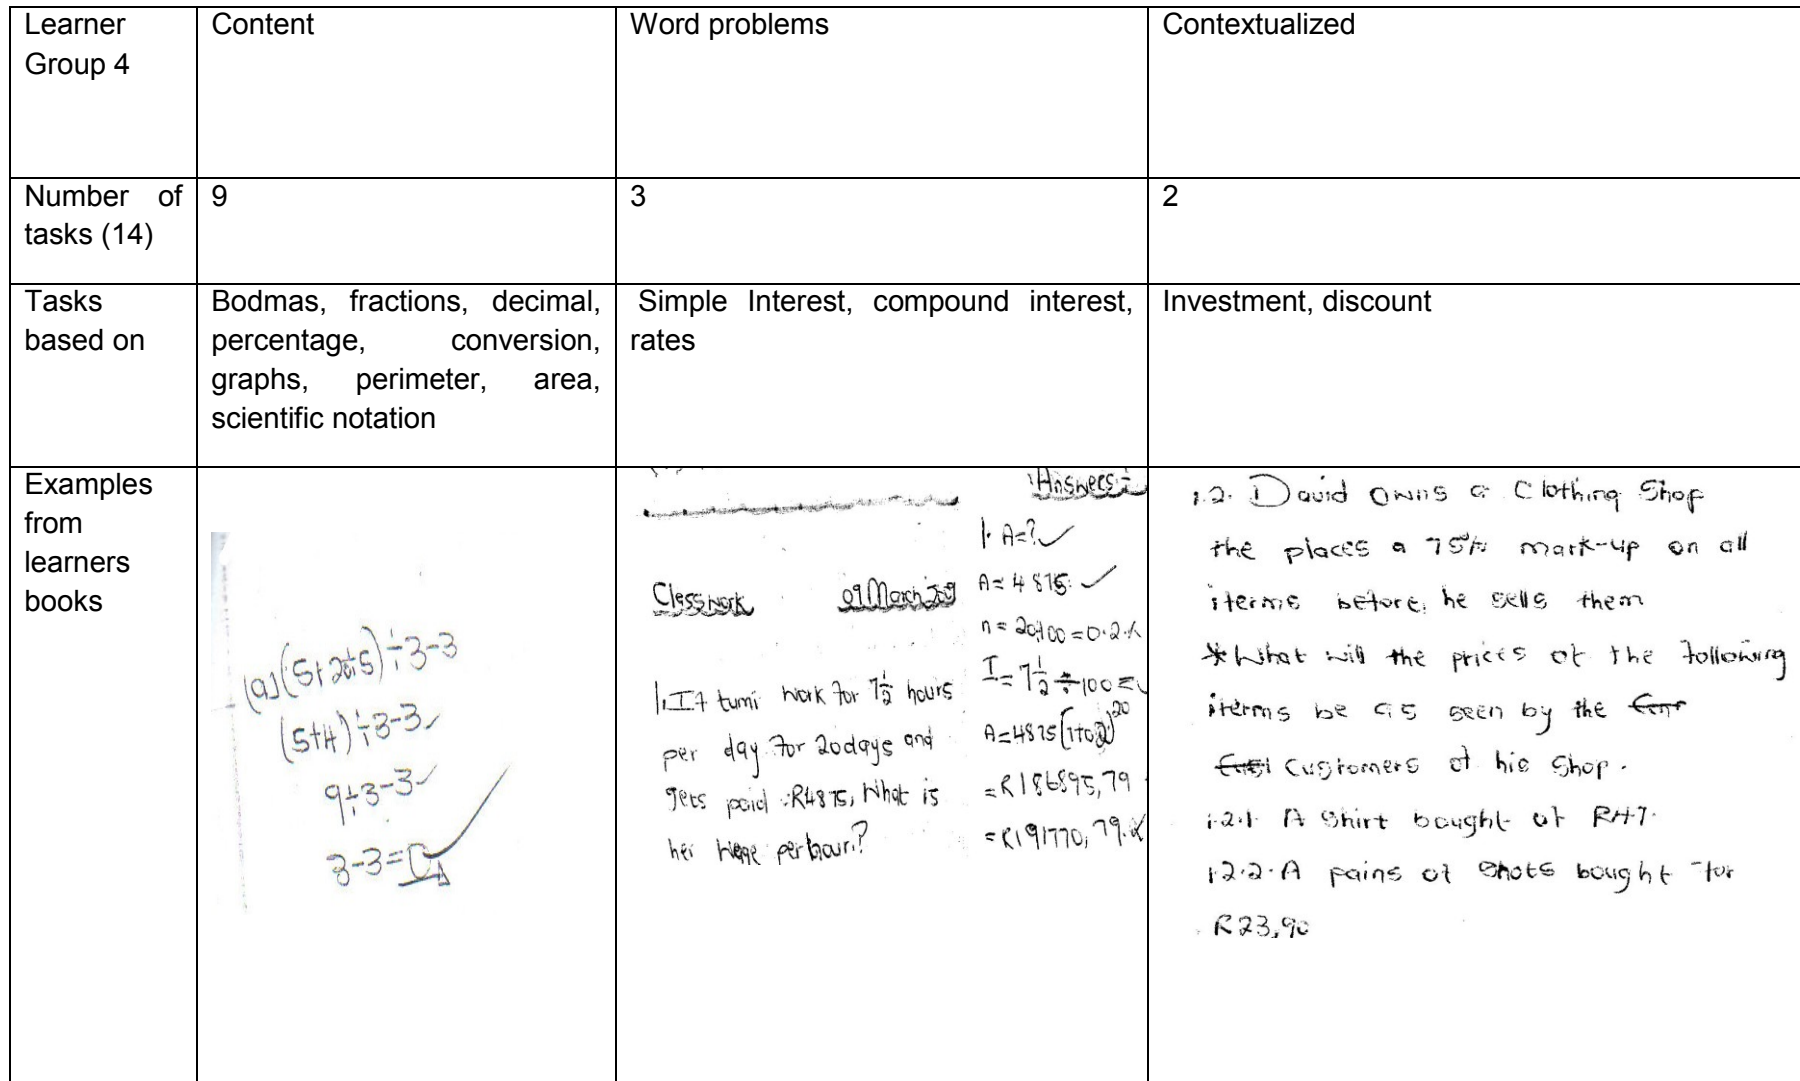 Learner Group 4
Content
Word problems
Contextualized
Number of tasks (14)
9
3
2
Tasks based on
Bodmas, fractions, decimal,
percentage, conversion,
graphs, perimeter, area,
scientific notation
Simple Interest, compound interest,
rates
Investment, discount
Examples
from
learners
books
(a) (5+20÷5)÷3-3
(5+4)÷3-3
9÷3-3
3-3=0
Answers:-
Classwork 09 March
1. If tumi work for 7½ hours
per day for 20days and
gets paid R4875, What is
her wage per hour?
1. A=?
A=4875
n=20/100=0.2
I=7½÷100=
A=4875(1+0.2)²⁰
=R186895,79
=R191770,79
1.2. David owns a Clothing Shop
the places a 75% mark-up on all
iterms before, he sells them
*What will the prices of the following
iterms be as seen by the
Customers of his Shop.
1.2.1 A Shirt bought at R47.
1.2.2. A pains of Shots bought for
R23,90